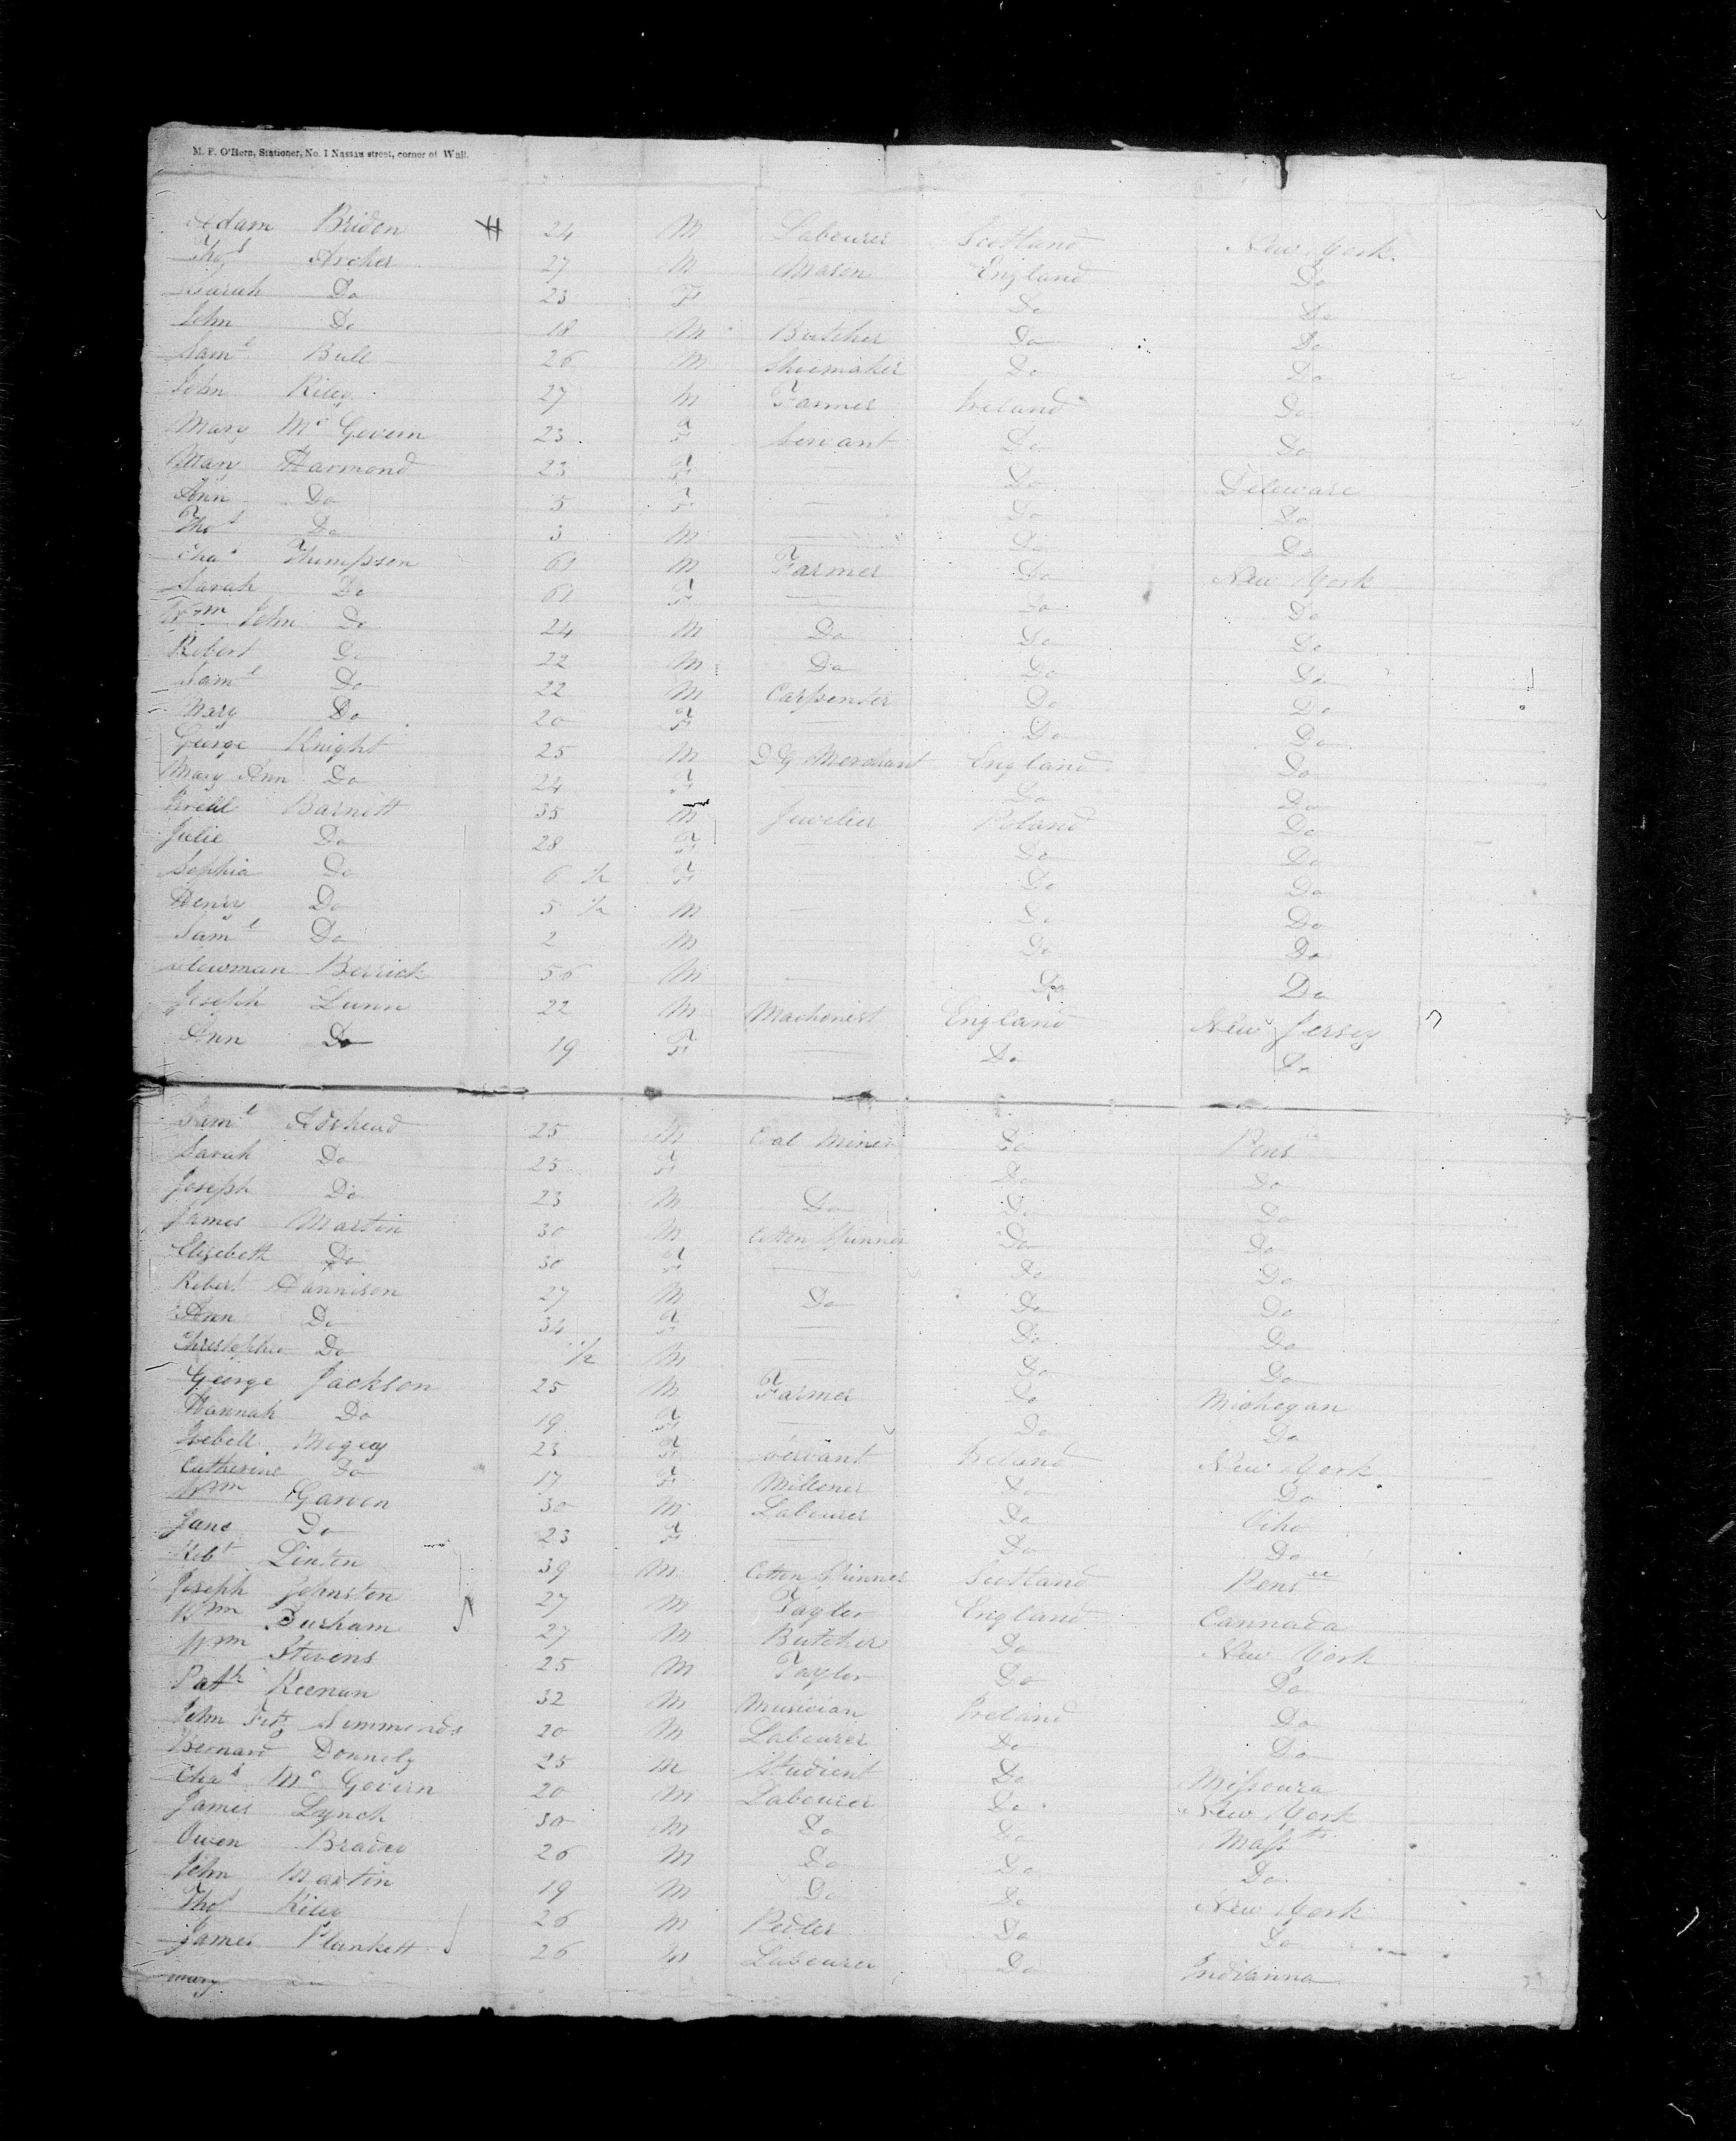 M. F. O'Hern, Stationer, No. 1 Nassau street, corner of Wall.
Adam Bridon 24 M Labourer Scotland New York
Thos Archer 27 M Mason England Do
Sarah Do 23 F — Do Do
John Do 18 M Butcher Do Do
Saml Bull 26 M Shoemaker Do Do
John Riley 27 M Farmer Ireland Do
Mary Mc Govern 23 F Servant Do Do
Mary Harmond 23 F Do Deleware
Ann Do 5 F — Do Do
Thos Do 3 M — Do Do
Chas Thompson 61 M Farmer Do New York
Sarah Do 61 F — Do Do
Wm John Do 24 M Do Do Do
Robert Do 22 M Do Do Do
Saml Do 22 M Carpenter Do Do
Mary Do 20 F — Do Do
George Knight 25 M D G Merchant England Do
Mary Ann Do 24 F — Do Do
Barnett 35 M Jewelier Poland Do
Julie Do 28 F — Do Do
Sophia Do 6 1/2 F — Do Do
Henry Do 5 1/2 M — Do Do
Saml Do 2 M — Do Do
Berrick 56 M — Do Do
Joseph Lunn 22 M Machonist England New Jersey
Ann Do 19 F — Do Do
Saml Adshead 25 M Coal Miner Do Pens
Sarah Do 25 F — Do Do
Joseph Do 23 M Do Do Do
James Martin 30 M Cotton Spinner Do Do
Elizebeth Do 30 F — Do Do
Robert Dannison 27 M Do Do Do
Ann Do 34 F — Do Do
Christopher Do 1/2 M — Do Do
George Jackson 25 M Farmer Do Michegan
Hannah Do 19 F — Do Do
Isebell 23 F Servant Ireland New York
Catherine Do 17 F Millener Do Do
Wm Garven 30 M Labourer Do Oiho
Jane Do 23 F — Do Do
Robt Linten 39 M Cotton Spinner Scotland Pens
Joseph Johnston 27 M Taylor England Cannada
Wm Durham 27 M Butcher Do New York
Wm Stevens 25 M Taylor Do Do
Patk Keenan 32 M Musician Ireland Do
John Fitz Simmonds 20 M Labourer Do Do
Bernard Donnely 25 M Studient Do Missoura
Chas Mc Govern 20 M Labourer Do New York
James Lynch 30 M Do Do Masts
Owen 26 M Do Do Do
John Martin 19 M Do Do New York
Thos Riley 26 M Pedler Do Do
James Plunkett 26 M Labourer Do Indianna
Mary Do